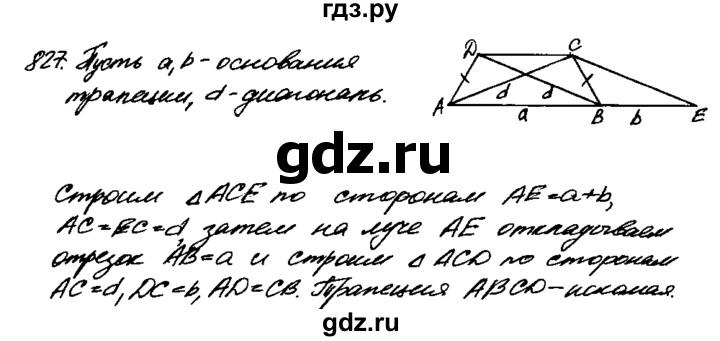 гдз.ру
827. Пусть a, b - основания
трапеции, d - диагональ.
D C
d d
A a B b E
gdz.ru
Строим △ ACE по сторонам AE=a+b,
AC=EC=d, затем на луче AE откладываем
отрезок AB=a и строим △ ACD по сторонам
AC=d, DC=b, AD=CB. Трапеция ABCD - искомая.
gdz.ru